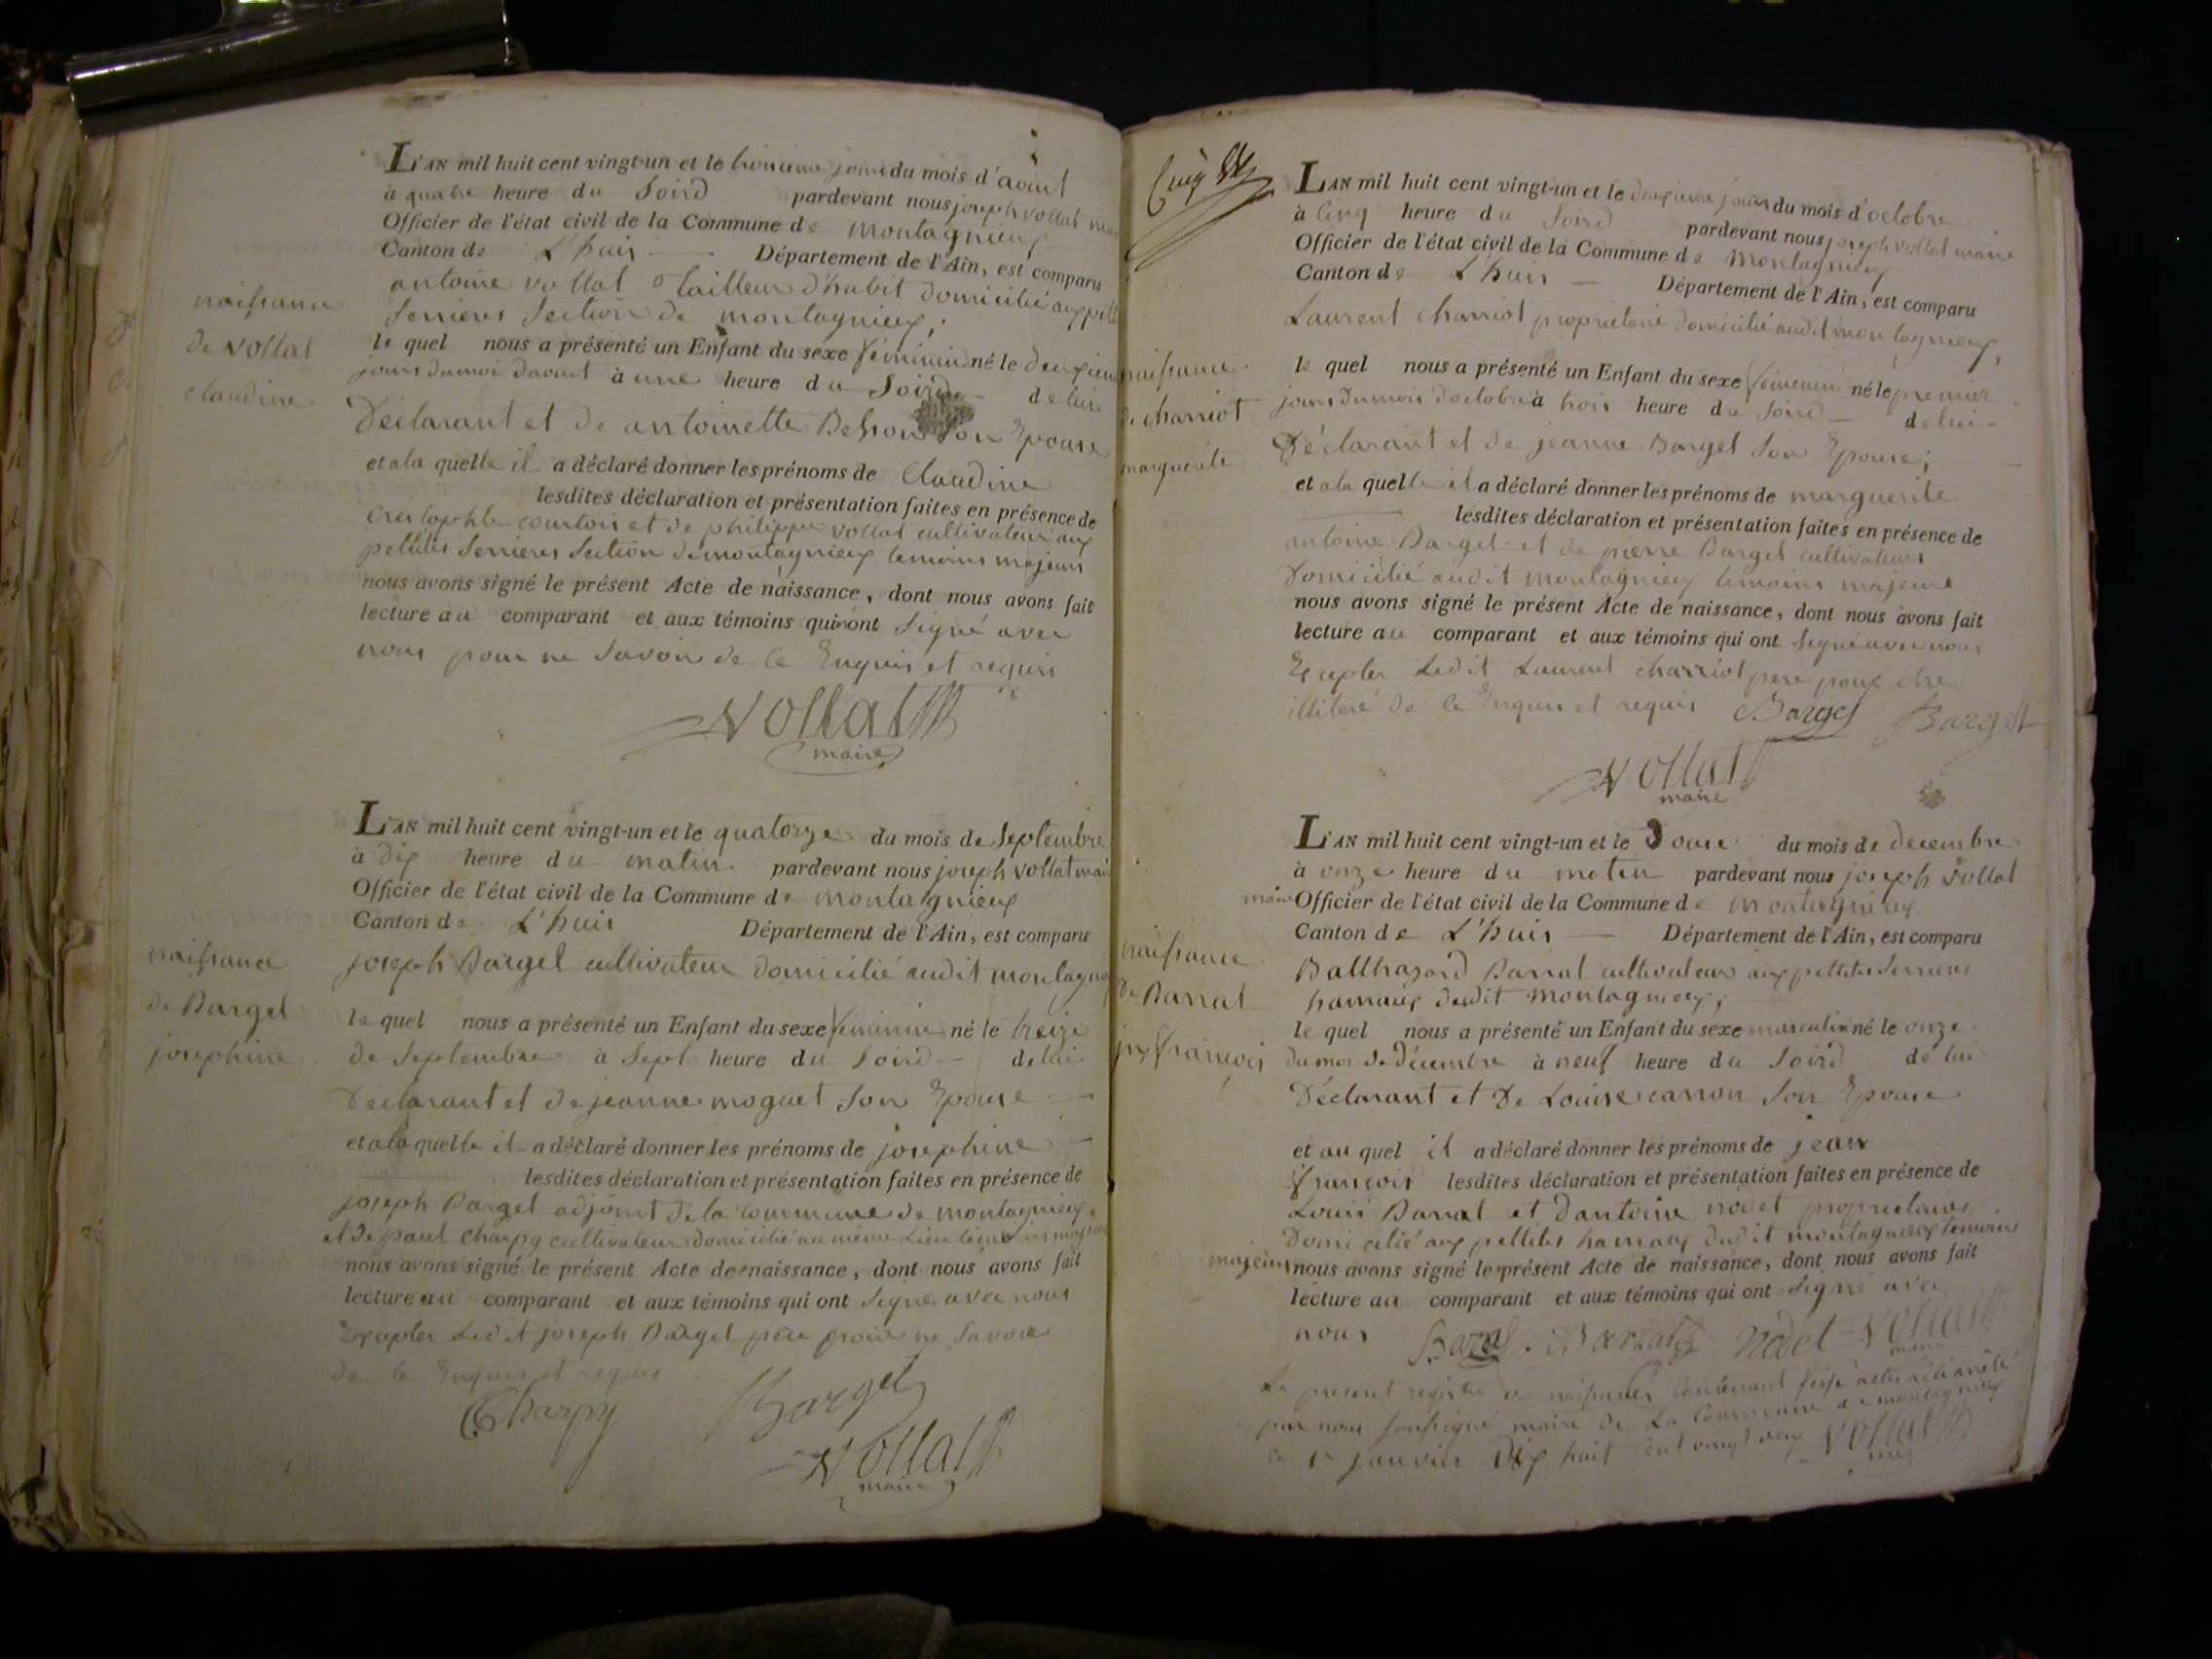 L'AN mil huit cent vingt-un et le troisieme jours du mois d'août
à quatre heure du soird pardevant nous joseph vollat
Officier de l'état civil de la Commune de montagnieux
Canton de L'huis Département de l'Ain, est comparu
antoine vollat tailleur d'habit domicilié aux
serrieres section de montagnieux,
le quel nous a présenté un Enfant du sexe féminin né le
jours du moi daout à une heure du soird de lui
Déclarant et de antoinette son Epouse
et a la quelle il a déclaré donner les prénoms de Claudine
lesdites déclaration et présentation faites en présence de
courtois et de philippe vollat cultivateur aux
pettites serrieres section de montagnieux temoins majeurs
nous avons signé le présent Acte de naissance, dont nous avons fait
lecture au comparant et aux témoins qui n'ont signé avec
nous pour ne savoir de ce Enquis et requis
vollat
maire
naissance
de vollat
claudine
L'AN mil huit cent vingt-un et le quatorze du mois de septembre
à dix heure du matin pardevant nous joseph vollat
Officier de l'état civil de la Commune de montagnieux
Canton de L'huis Département de l'Ain, est comparu
joseph Bargel cultivateur domicilié audit
le quel nous a présenté un Enfant du sexe féminin né le treize
de septembre à sept heure du soird de lui
Déclarant et de jeanne moguet son Epouse
et a la quelle il a déclaré donner les prénoms de josephine
lesdites déclaration et présentation faites en présence de
joseph Bargel adjoint de la commune de montagnieux
et de paul charpy cultivateur domicilié au même Lieu
nous avons signé le présent Acte de naissance, dont nous avons fait
lecture au comparant et aux témoins qui ont signé avec nous
Excepter Ledit joseph Bargel père pour ne savoir
de ce Enquis et requis
Charpy Bargel
vollat
maire
naissance
de Bargel
josephine
L'AN mil huit cent vingt-un et le deuxieme jours du mois d'octobre
à cinq heure du soird pardevant nous joseph vollat maire
Officier de l'état civil de la Commune de Montagnieux
Canton de L'huis Département de l'Ain, est comparu
Laurent charriot proprietaire domicilié audit montagnieux,
le quel nous a présenté un Enfant du sexe féminin né le premier
jours du mois doctobre à trois heure du soird de lui
Déclarant et de jeanne Bargel son Epouse;
et a la quelle il a déclaré donner les prénoms de marguerite
lesdites déclaration et présentation faites en présence de
antoine Bargel et de pierre Bargel cultivateurs
Domicilié audit montagnieux temoins majeurs
nous avons signé le présent Acte de naissance, dont nous avons fait
lecture au comparant et aux témoins qui ont signé avec nous
Excepter Ledit Laurent charriot pere pour être
illiteré de ce Enquis et requis Bargel Bargel
vollat
maire
naissance
de charriot
marguerite
L'AN mil huit cent vingt-un et le Douze du mois de decembre
à onze heure du matin pardevant nous joseph vollat
maire Officier de l'état civil de la Commune de montagnieux
Canton de L'huis Département de l'Ain, est comparu
Balthazard Barral cultivateur aux pettites serrieres
hamaux dudit Montagnieux,
le quel nous a présenté un Enfant du sexe masculin né le onze
du moi de décembre à neuf heure du soird de lui
Déclarant et De Louise carron son Epouse
et au quel il a déclaré donner les prénoms de jean
françois lesdites déclaration et présentation faites en présence de
Louis Barral et dantoine nodet proprietaires
Domicilié aux pettites hamaux dudit montagnieux temoins
majeurs nous avons signé le présent Acte de naissance, dont nous avons fait
lecture au comparant et aux témoins qui ont signé avec
nous Barral Nodet vollat
maire
naissance
de Barral
françois
Le present registre de naissances contenant actes a été arrêté
par nous soussigné maire de La Commune de montagnieux
ce 1er janvier Dix huit cent vingt deux vollat
maire